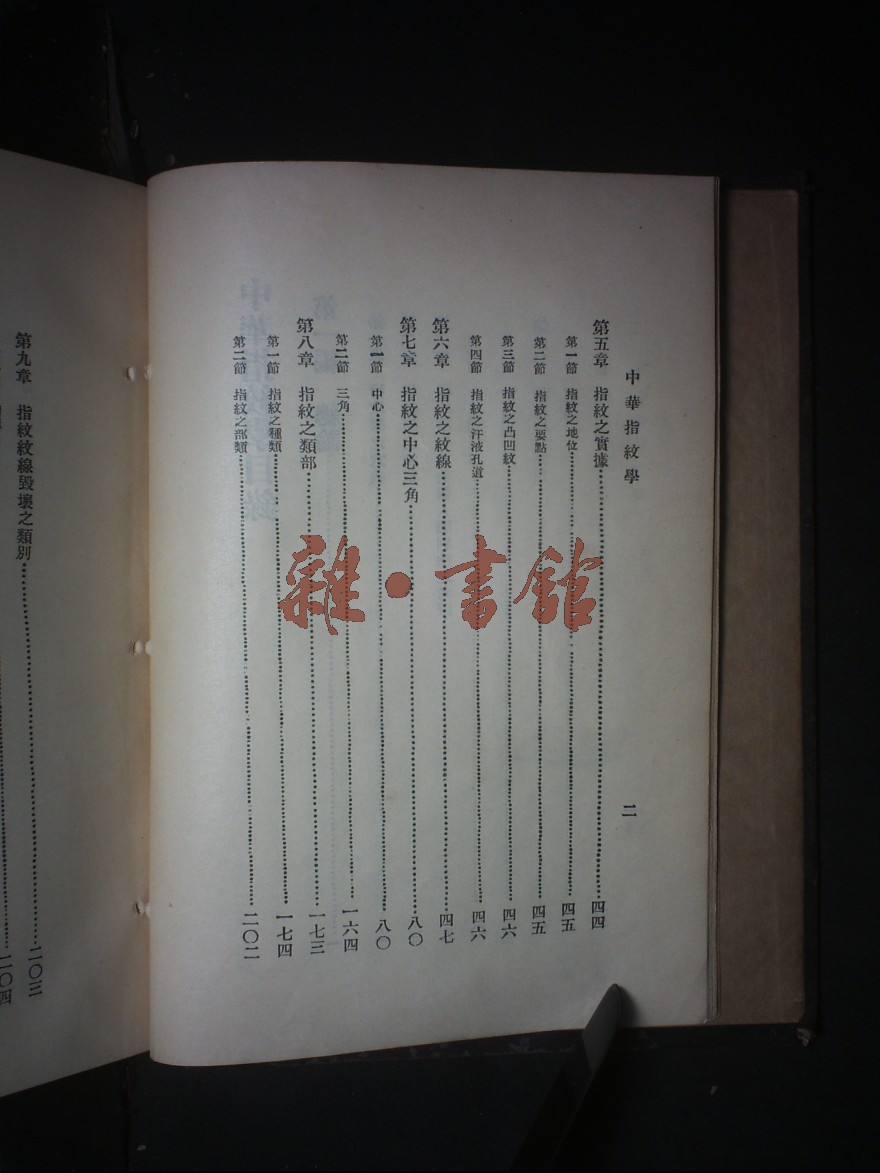 中華指紋學
二
第五章 指紋之實據 四四
第一節 指紋之地位 四五
第二節 指紋之要點 四五
第三節 指紋之凸凹紋 四六
第四節 指紋之汗液孔道 四六
第六章 指紋之紋線 四七
第七章 指紋之中心三角 八〇
第一節 中心 八〇
第二節 三角 一六四
第八章 指紋之類部 一七三
第一節 指紋之種類 一七四
第二節 指紋之部類 二〇二
第九章 指紋紋線毀壞之類別 二〇三
二〇四
雜·書館